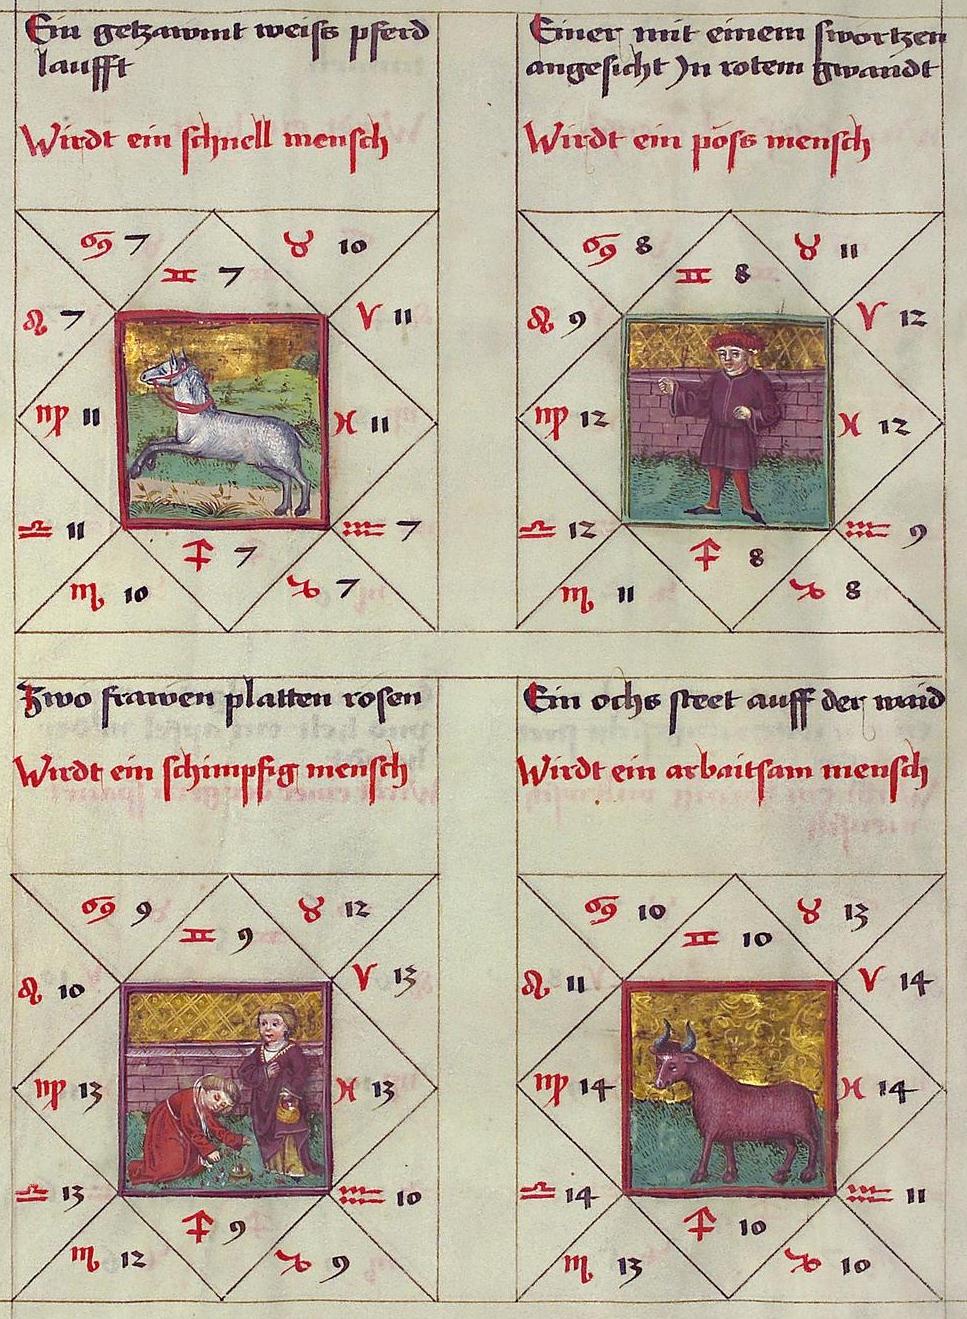 Ein getzawmt weiss pferd
laufft
Wirdt ein schnell mensch
♋ 7
♊ 7
♉ 10
♌ 7
♈ 11
♍ 11
♓ 11
♎ 11
♒ 7
♐ 7
♏ 10
♑ 7
Einer mit einem swortzen
angesicht In rotem gwandt
Wirdt ein pöss mensch
♋ 8
♊ 8
♉ 11
♌ 9
♈ 12
♍ 12
♓ 12
♎ 12
♒ 9
♐ 8
♏ 11
♑ 8
Zwo frawen platten rosen
Wirdt ein schimpfig mensch
♋ 9
♊ 9
♉ 12
♌ 10
♈ 13
♍ 13
♓ 13
♎ 13
♒ 10
♐ 9
♏ 12
♑ 9
Ein ochs steet auff der waid
Wirdt ein arbaitsam mensch
♋ 10
♊ 10
♉ 13
♌ 11
♈ 14
♍ 14
♓ 14
♎ 14
♒ 11
♐ 10
♏ 13
♑ 10